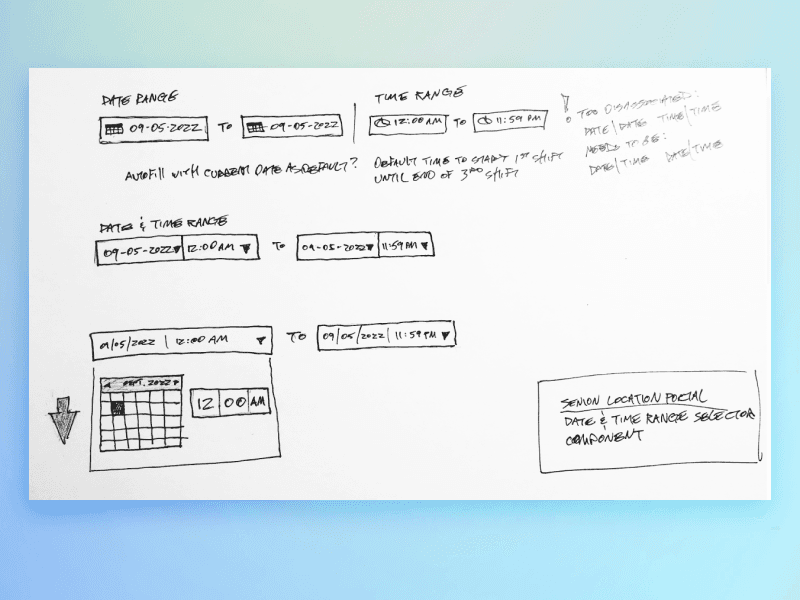 DATE RANGE
09-05-2022 TO 09-05-2022
AUTOFILL WITH CURRENT DATE AS DEFAULT?
TIME RANGE
12:00 AM TO 11:59 PM
DEFAULT TIME TO START 1ST SHIFT
UNTIL END OF 3RD SHIFT
! TOO DISASSOCIATED:
DATE/DATE TIME/TIME
NEEDS TO BE:
DATE/TIME DATE/TIME
DATE & TIME RANGE
09-05-2022 12:00 AM TO 09-05-2022 11:59 PM
09/05/2022 | 12:00 AM TO 09/05/2022 | 11:59 PM
SEPT. 2022
12 00 AM
LOCATION PORTAL
DATE & TIME RANGE SELECTOR
COMPONENT